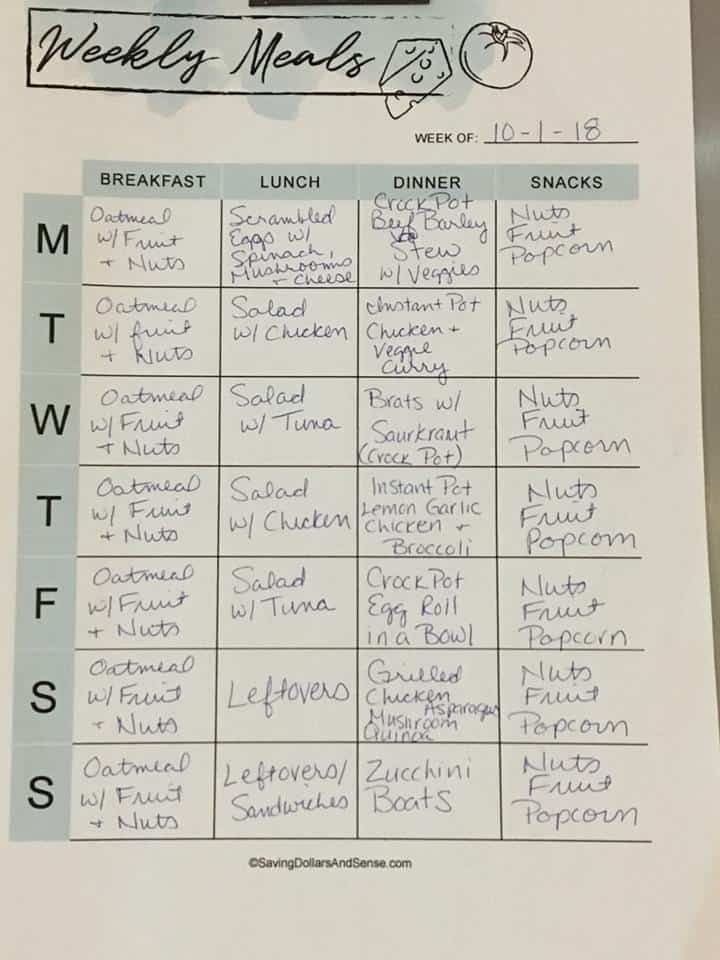 Weekly Meals
WEEK OF: 10-1-18
BREAKFAST LUNCH DINNER SNACKS
M
Oatmeal
w/ Fruit
+ Nuts
Scrambled
Eggs w/
Spinach,
Mushrooms
+ Cheese
Crock Pot
Beef Barley
Stew
w/ Veggies
Nuts
Fruit
Popcorn
T
Oatmeal
w/ fruit
+ Nuts
Salad
w/ Chicken
Instant Pot
Chicken +
Veggie
Curry
Nuts
Fruit
Popcorn
W
Oatmeal
w/ Fruit
+ Nuts
Salad
w/ Tuna
Brats w/
Saurkraut
(Crock Pot)
Nuts
Fruit
Popcorn
T
Oatmeal
w/ Fruit
+ Nuts
Salad
w/ Chicken
Instant Pot
Lemon Garlic
Chicken +
Broccoli
Nuts
Fruit
Popcorn
F
Oatmeal
w/ Fruit
+ Nuts
Salad
w/ Tuna
Crock Pot
Egg Roll
in a Bowl
Nuts
Fruit
Popcorn
S
Oatmeal
w/ Fruit
+ Nuts
Leftovers
Grilled
Chicken
Asparagus
Mushroom
Quinoa
Nuts
Fruit
Popcorn
S
Oatmeal
w/ Fruit
+ Nuts
Leftovers/
Sandwiches
Zucchini
Boats
Nuts
Fruit
Popcorn
©SavingDollarsAndSense.com